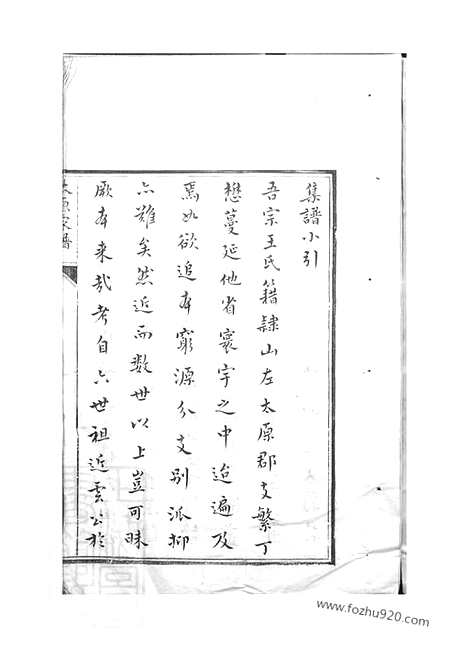 集譜小引
吾宗王氏籍隸山左太原郡支繁丁
懋蔓延他省寰宇之中迨遍及
焉如欲追本窮源分支別派抑
亦難矣然近而数世以上豈可昧
厥本来哉考自六世祖近雲公於
太原家譜
www.fozhu920.com